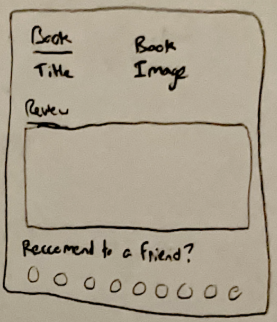 Book
Title
Book
Image
Review
Reccomend to a friend?